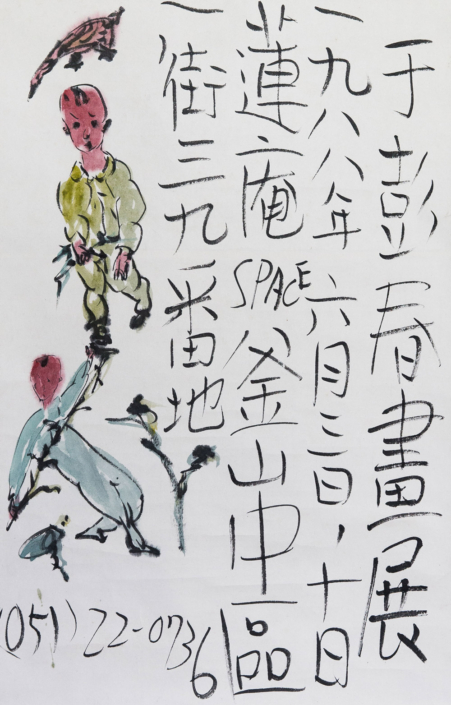 于彭春畫展
一九八八年六月三日、十日
蓮庵SPACE釜山中區
一街三九番地
(051)22-0736